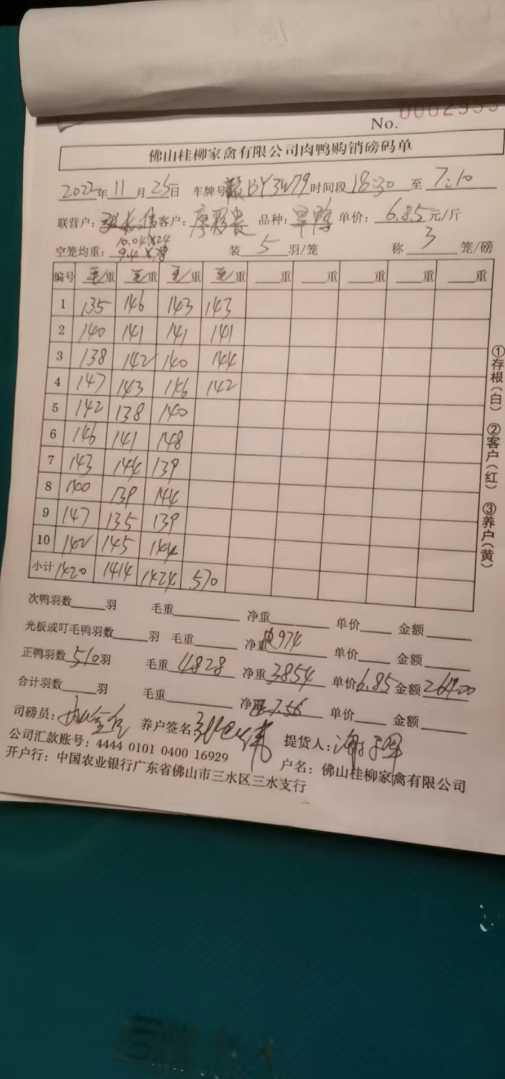 No.
佛山桂柳家禽有限公司肉鸭购销磅码单
2022年 11 月 25日 车牌号 BY3W79 时间段 18:30 至 7:10
联营户: 客户: 廖彩 品种: 旱鸭 单价: 6.85 元/斤
10.04×24
空笼均重: 9.4 装 5 羽/笼 称 3 笼/磅
编号 毛重 毛重 毛重 毛重 重 重 重 重 重
1 135 146 143 143
2 140 141 141 141
3 138 142 140 144
4 147 143 146 142
5 142 138 140
6 146 141 148
7 143 144 139
8 140 139 144
9 147 135 139
10 142 145 144
小计 1420 1414 1424 570
次鸭羽数 羽 毛重 净重 单价 金额
光板或叮毛鸭羽数 羽 毛重 净重 皮974 单价 金额
正鸭羽数 510 羽 毛重 4828 净重 3854 单价 6.85 金额 26400
合计羽数 羽 毛重 净重 7.56 单价 金额
司磅员: 养户签名: 提货人:
公司汇款账号: 4444 0101 0400 16929 户名: 佛山桂柳家禽有限公司
开户行: 中国农业银行广东省佛山市三水区三水支行
①存根(白) ②客户(红) ③养户(黄)